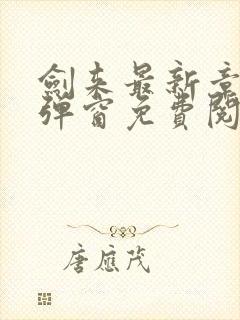 劍來最新章
彈窗免費閱
唐應茂